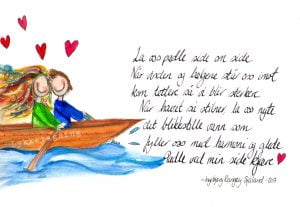 La oss padle side om side
Når vinden og bølgene står oss imot
kom tettere så vi blir sterkere
Når havet så stilner, la oss nyte
det blikkstille vann som
fyller oss med harmoni og glede
Padle ved min side kjære